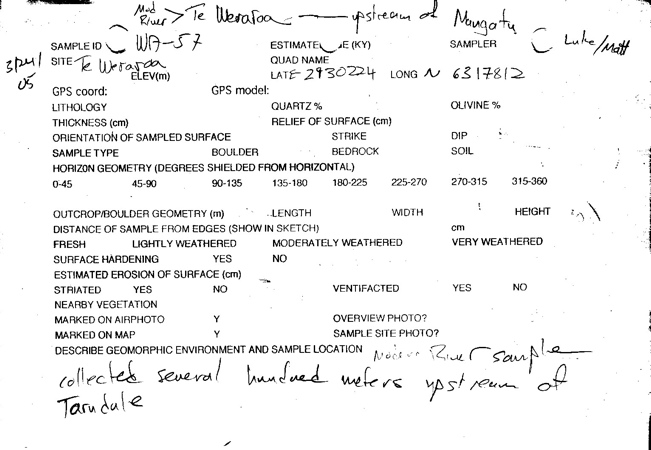 Mod River > Te Weraroa — upstream of Mangatu
SAMPLE ID WA-57 ESTIMATE E (KY) SAMPLER Luke/Matt
31 Jul 05 SITE Te Weraroa QUAD NAME
ELEV(m) LAT E 2930224 LONG N 6317812
GPS coord: GPS model:
LITHOLOGY QUARTZ % OLIVINE %
THICKNESS (cm) RELIEF OF SURFACE (cm)
ORIENTATION OF SAMPLED SURFACE STRIKE DIP
SAMPLE TYPE BOULDER BEDROCK SOIL
HORIZON GEOMETRY (DEGREES SHIELDED FROM HORIZONTAL)
0-45 45-90 90-135 135-180 180-225 225-270 270-315 315-360
OUTCROP/BOULDER GEOMETRY (m) LENGTH WIDTH HEIGHT
DISTANCE OF SAMPLE FROM EDGES (SHOW IN SKETCH) cm
FRESH LIGHTLY WEATHERED MODERATELY WEATHERED VERY WEATHERED
SURFACE HARDENING YES NO
ESTIMATED EROSION OF SURFACE (cm)
STRIATED YES NO VENTIFACTED YES NO
NEARBY VEGETATION
MARKED ON AIRPHOTO Y OVERVIEW PHOTO?
MARKED ON MAP Y SAMPLE SITE PHOTO?
DESCRIBE GEOMORPHIC ENVIRONMENT AND SAMPLE LOCATION Modern River sample
collected several hundred meters upstream of
Tarndale